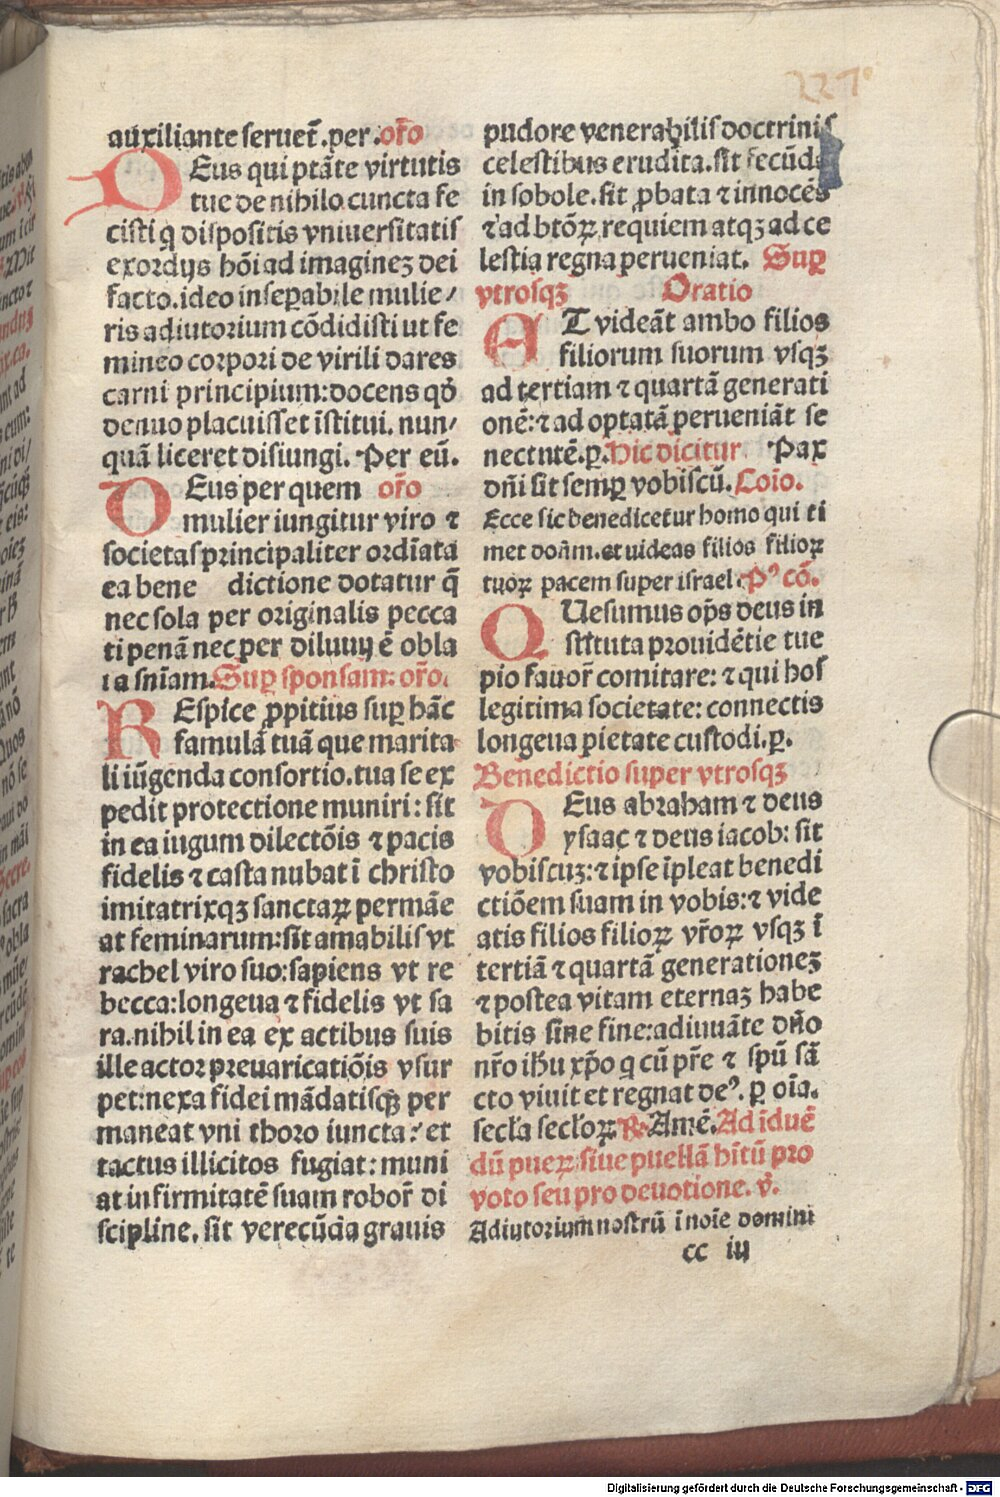 227
auxiliante seruet̄.per.or̄o
DEus qui ptāte virtutis
tue de nihilo cuncta fe
cisti q̇ dispositis vniuersitatis
exordijs hōi ad imagineꝫ dei
facto.ideo insepabile mulie/
ris adiutorium cōdidisti ut fe
mineo corpori de virili dares
carni principium:docens qđ
denuo placuisset īstitui. nun/
quā liceret disiungi. Per eū.
DEus per quem or̄o
mulier iungitur viro ⁊
societas principaliter ordīata
ea bene dictione dotatur q̄
nec sola per originalis pecca
ti penā nec per diluuij ē obla
ta sn̄iam.Suꝑ sponsam: or̄o.
REspice ꝓpitius suꝑ hāc
famulā tuā que marita
li iūgenda consortio.tua se ex
pedit protectione muniri: sit
in ea iugum dilectōis ⁊ pacis
fidelis ⁊ casta nubat ī christo
imitatrixqꝫ sanctaꝝ permāe
at feminarum:sit amabilis vt
rachel viro suo:sapiens vt re
becca:longeua ⁊ fidelis vt sa
ra.nihil in ea ex actibus suis
ille actor preuaricatiōis vsur
pet:nexa fidei mādatisqꝫ per
maneat vni thoro iuncta: et
tactus illicitos fugiat: muni
at infirmitatē suam robor̄ di
scipline. sit verecūdia grauis
pudore venerabilis doctrinis
celestibus erudita.sit fecūda
in sobole.sit ꝓbata ⁊ innocēs
⁊ ad btōꝝ requiem atqꝫ ad ce
lestia regna perueniat. Suꝑ
vtrosqꝫ Oratio
ET videāt ambo filios
filiorum suorum vsqꝫ
ad tertiam ⁊ quartā generati
onē:⁊ ad optatā perueniāt se
nectutē.ꝑ.Hic dicitur. Pax
dn̄i sit semꝑ vobiscū.Coīo.
Ecce sic benedicetur homo qui ti
met don̄m.et uideas filios filioꝝ
tuoꝝ pacem super israel.Pꝰ cō.
QUesumus op̄s deus in
stituta prouidētie tue
pio fauor̄ comitare: ⁊ qui hos
legitima societate: connectis
longeua pietate custodi.ꝑ.
Benedictio super vtrosqꝫ
DEus abraham ⁊ deus
ysaac ⁊ deus iacob: sit
vobiscuꝫ:⁊ ipse īpleat benedi
ctiōem suam in vobis:⁊ vide
atis filios filioꝝ vr̄oꝝ vsqꝫ ī
tertiā ⁊ quartā generationeꝫ
⁊ postea vitam eternaꝫ habe
bitis sine fine:adiuuāte dn̄o
nr̄o ihū xp̄o q cū pr̄e ⁊ spū sā
cto viuit et regnat deꝰ. ꝑ oīa.
secƚa secƚoꝝ ℟ Amē.Ad īduē
dū pueꝝ siue puellā hītū pro
voto seu pro deuotione. v̄.
Adiutorium nostrū ī noīe domini
cc iij
Digitalisierung gefördert durch die Deutsche Forschungsgemeinschaft - DFG